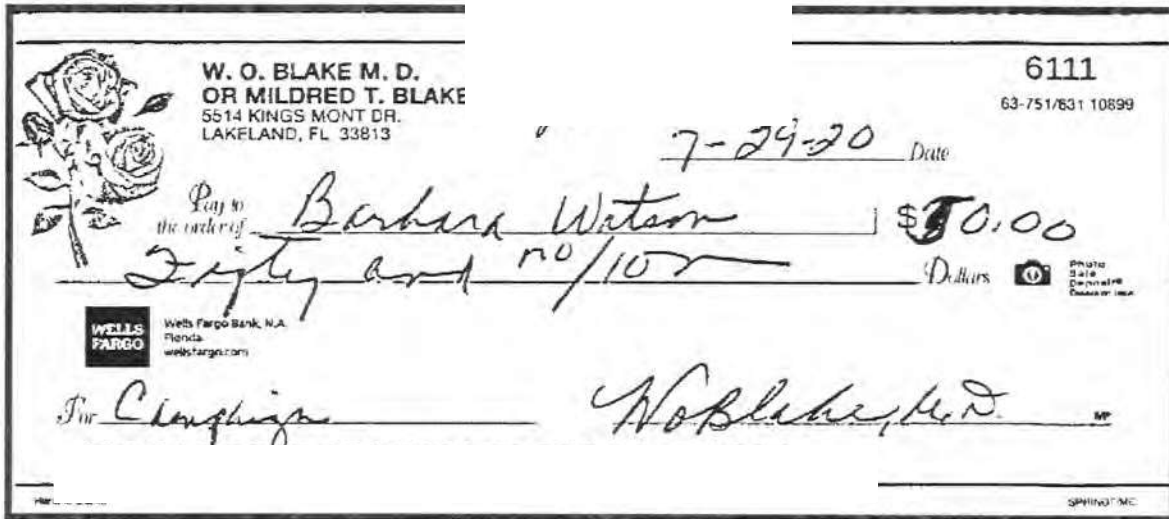 W. O. BLAKE M. D.
OR MILDRED T. BLAKE
5514 KINGS MONT DR.
LAKELAND, FL 33813
6111
63-751/631 10899
7-29-20 Date
Pay to
the order of Barbara Watson $ 0.00
and no/10 Dollars
Photo
Safe
Deposit®
WELLS
FARGO
Wells Fargo Bank, N.A.
Florida
wellsfargo.com
For
WOBlake, M.D. MP